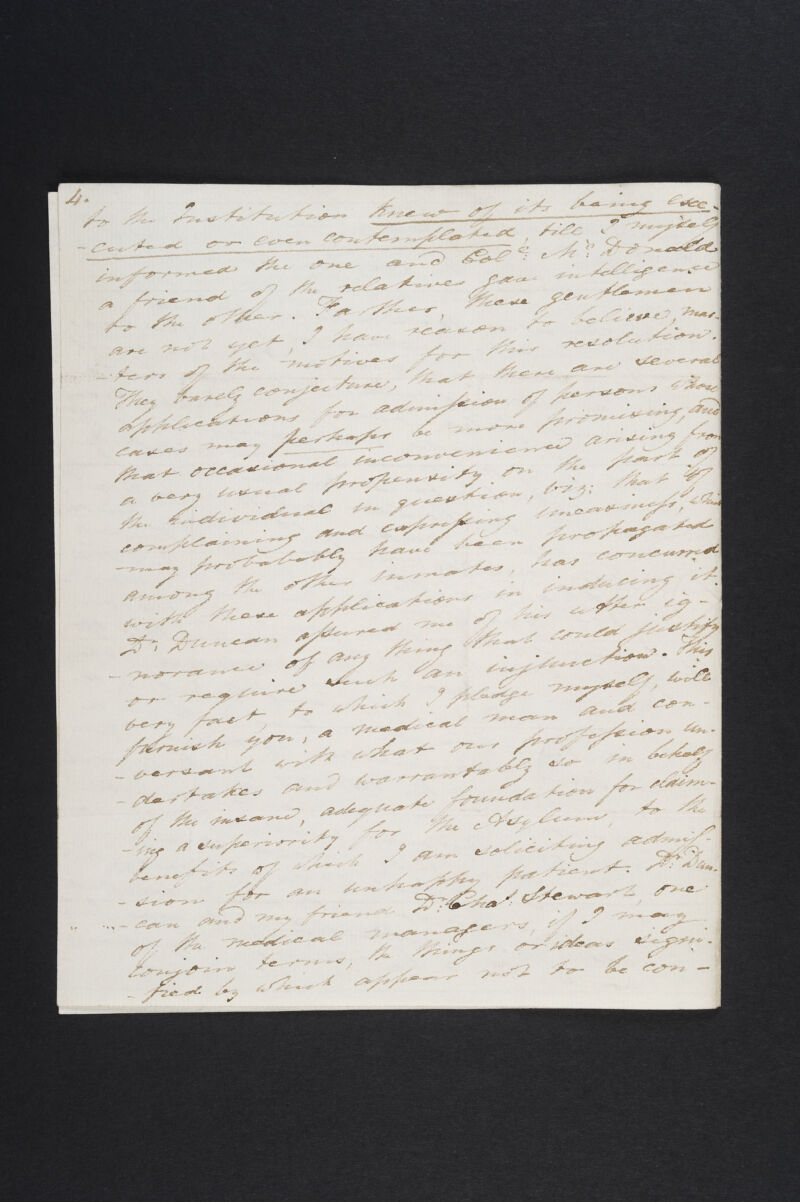 4.
to the Institution knew of its being exe-
-cuted or even contemplated, till I myself
informed the one and Col.c McDonald
a friend of the relatives gave intelligence
to the other. Farther, these gentlemen
are not yet, I have reason to believe, mas-
-ters of the motives for this resolution.
They barely conjecture, that there are several
applications for admission of persons whose
cases may perhaps be more promising, and
that occasional inconvenience arising from
a very usual propensity on the part of
the individual in question, viz: that of
complaining and expressing uneasiness, which
-may probably have been propagated
among the other inmates, has concurred
with these applications in inducing it.
Dr. Duncan assured me of his utter ig-
-norance of any thing that could justify
or require such an injunction. This
very fact, to which I pledge myself, will
furnish you, a medical man and con-
-versant with what our profession un-
-dertakes and warrantably so in behalf
of the insane, adequate foundation for claim-
-ing a superiority for the Asylum, to the
benefits of which I am soliciting admis-
-sion for an unhappy patient. Dr. Dun-
-can and my friend Dr. Chas. Stewart, one
of the medical managers, if I may
conjoin terms, the things or ideas signi-
-fied by which appear not to be con-